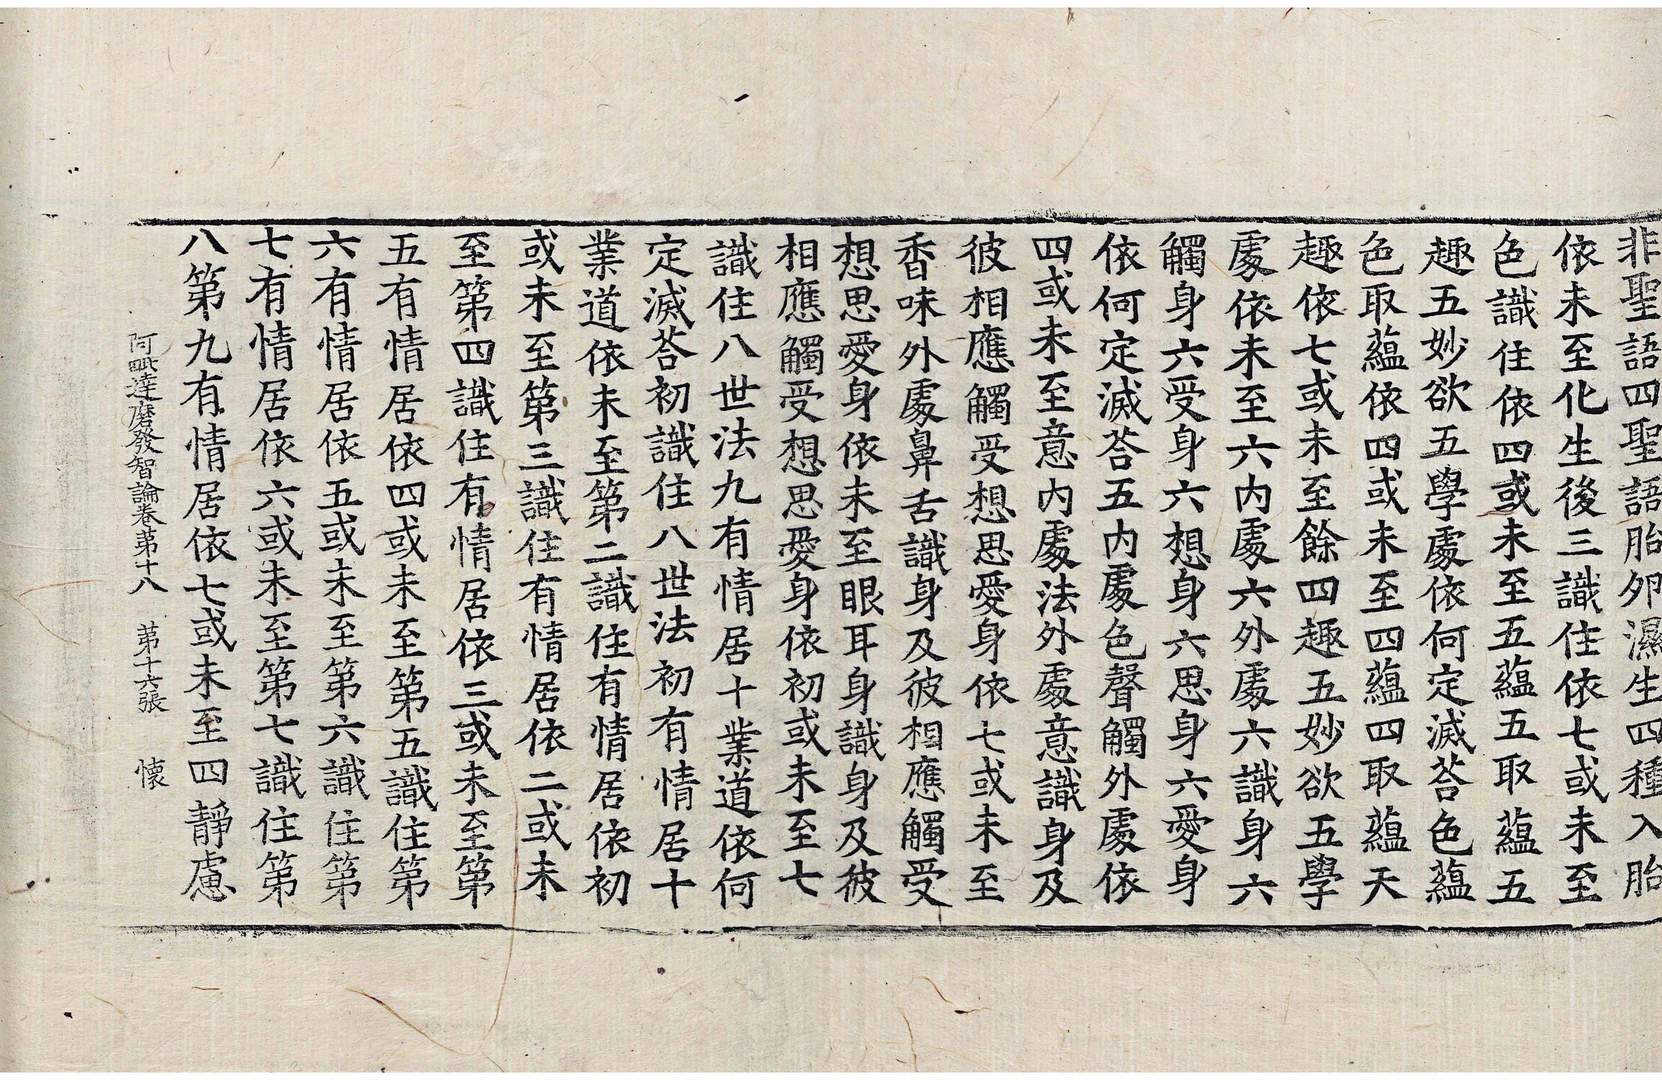 非聖語四聖語胎夘濕生四種入胎
依未至化生後三識住依七或未至
色識住依四或未至五蘊五取蘊五
趣五妙欲五學處依何定滅荅色蘊
色取蘊依四或未至四蘊四取蘊天
趣依七或未至餘四趣五妙欲五學
處依未至六内處六外處六識身六
觸身六受身六想身六思身六愛身
依何定滅荅五内處色聲觸外處依
四或未至意内處法外處意識身及
彼相應觸受想思愛身依七或未至
香味外處鼻舌識身及彼相應觸受
想思愛身依未至眼耳身識身及彼
相應觸受想思愛身依初或未至七
識住八世法九有情居十業道依何
定滅荅初識住八世法初有情居十
業道依未至第二識住有情居依初
或未至第三識住有情居依二或未
至第四識住有情居依三或未至第
五有情居依四或未至第五識住第
六有情居依五或未至第六識住第
七有情居依六或未至第七識住第
八第九有情居依七或未至四靜慮
阿毗達磨發智論卷第十八 第十六張 懷